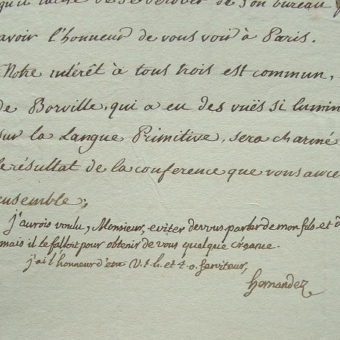 qu'il tâche de se dérober de son bureau
avoir l'honneur de vous voir à Paris.
Notre intérêt à tous trois est commun,
de Borville, qui a eu des vuës si lumin
sur la Langue Primitive, sera charmé
le résultat de la conference que vous
ensemble;
j'aurois voulu, Monsieur, eviter de vous parler de mon fils et d
mais il le falloit pour obtenir de vous quelque créance.
j'ai l'honneur d'etre V. t. h. et t. o. serviteur,
Hernandez